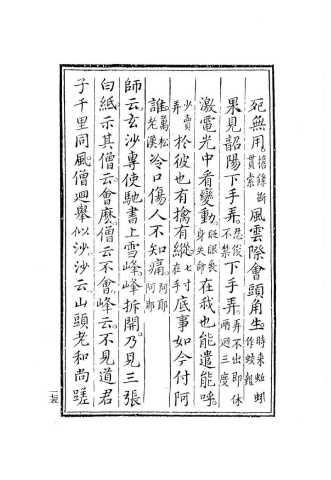 死無用擔條斷貫索風雲際會頭角生時來蚯蚓作蛟龍
果見韶陽下手弄忍俊不禁下手弄弄不出即休兩迴三度
激電光中看變動眨眼喪身失命在我也能遣能呼
少賣弄扵彼也有擒有縱七寸在手底事如今付阿
誰萬松老漢冷口傷人不知痛阿耶阿耶
師云玄沙專使馳書上雪峰峰拆開乃見三張
白紙示其僧云會麽僧云不會峰云不見道君
子千里同風僧迴舉似沙沙云山頭老和尚蹉